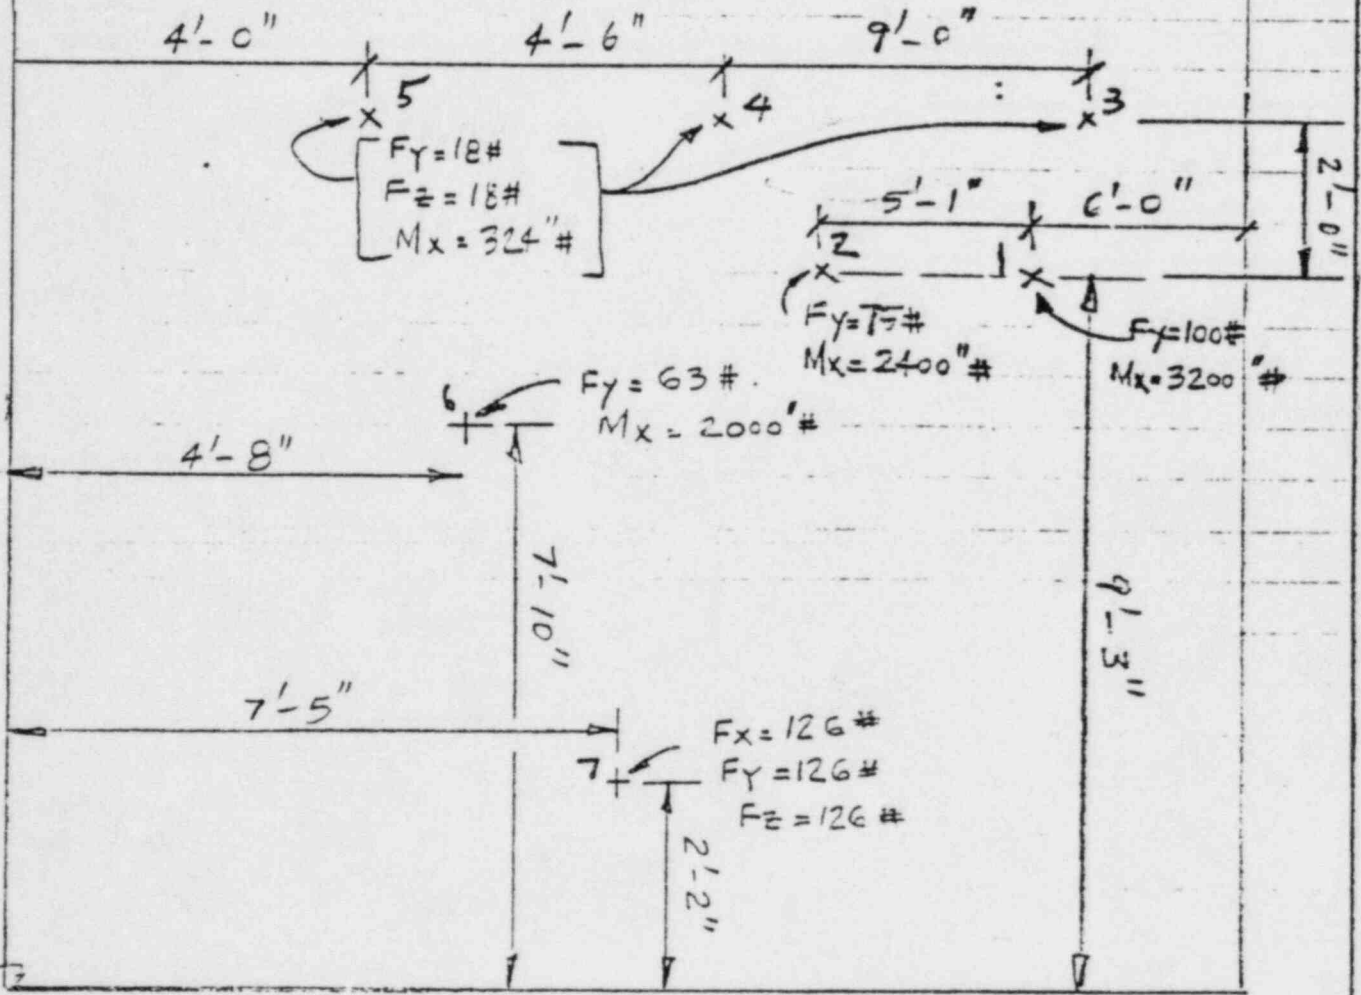 4'-0" 4'-6" 9'-0"
5 4 3
Fy=18#
Fz=18#
Mx=324"#
2'-0"
5'-1" 6'-0"
2 1
Fy=100#
Mx=2400"#
Mx=3200"#
6
Fy=63#.
Mx=2000"#
4'-8"
7'-10"
9'-3"
7'-5"
7
Fx=126#
Fy=126#
Fz=126#
2'-2"